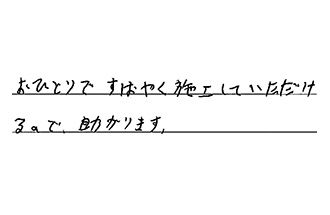 おひとりで すばやく施工していただけ
るので、助かります。